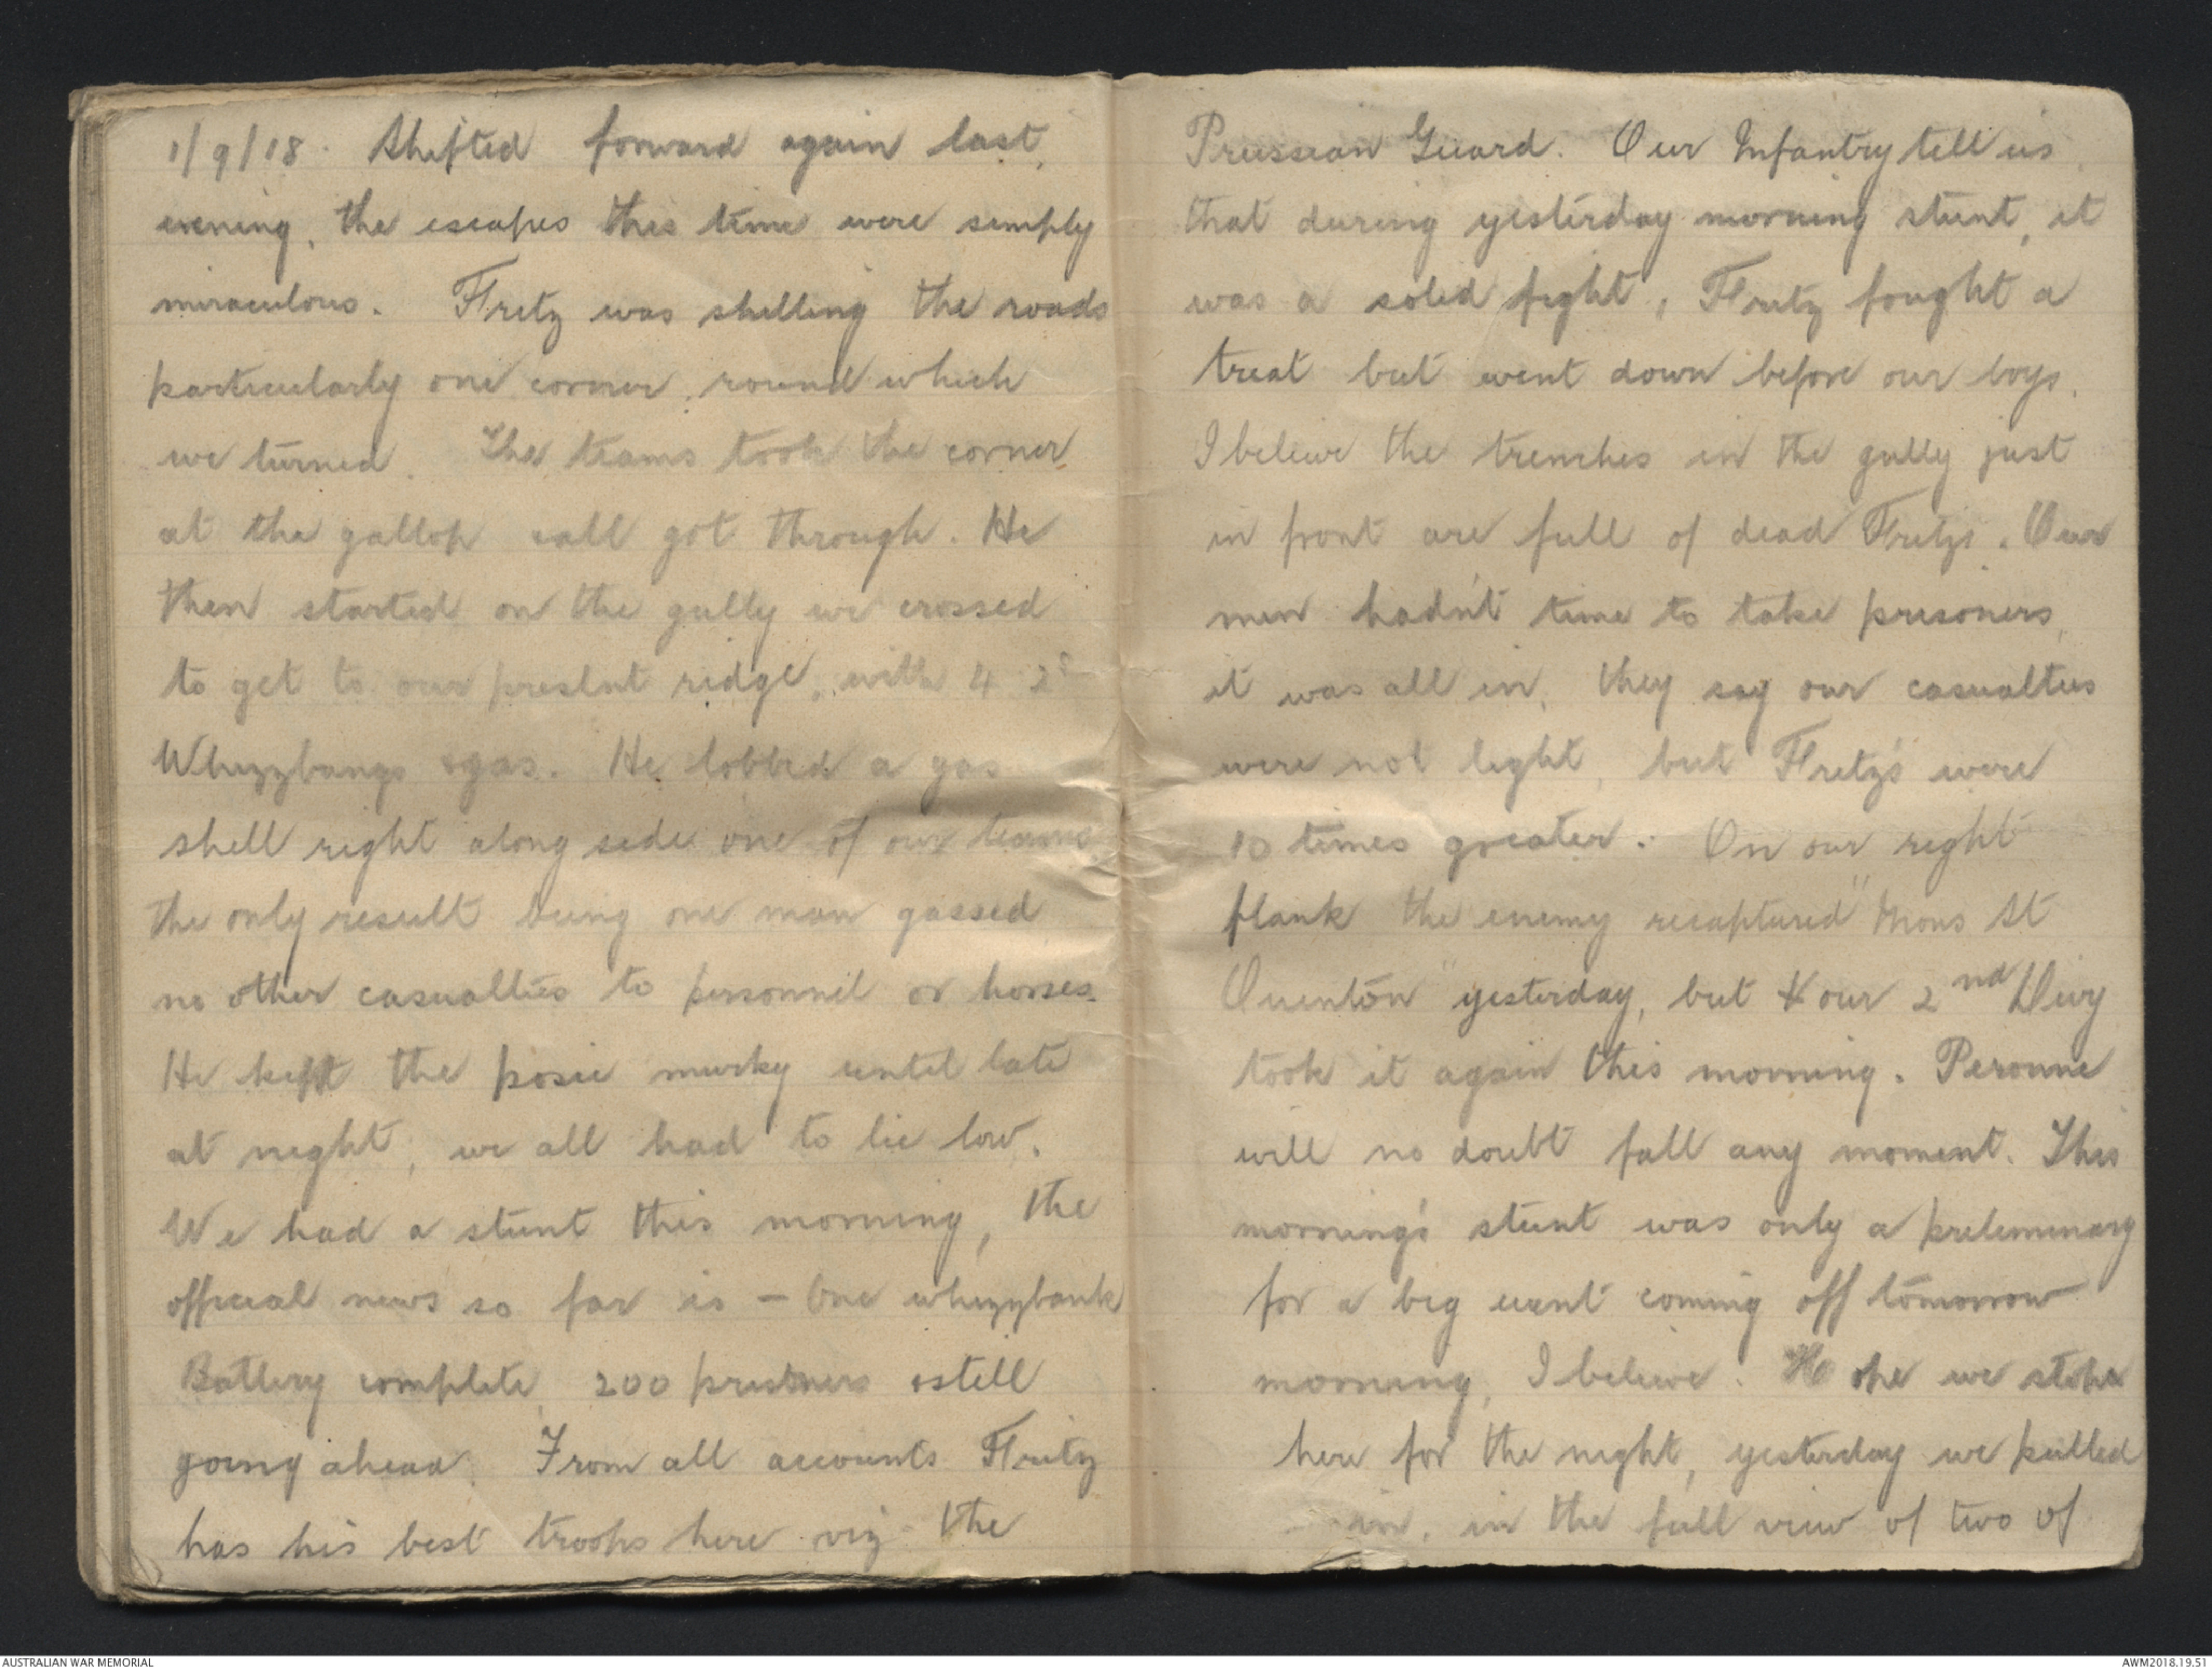 1/9/18. Shifted forward again last
evening, the escapes this time were simply
miraculous. Fritz was shelling the roads
particularly one corner, round which
we turned. The teams took the corner
at the gallop & all got through. He
then started on the gully we crossed
to get to our present ridge, with 4.2s
Whizzbangs & gas. He lobbed a gas
shell right along side one of our teams
the only result being one man gassed
no other casualties to personnel or horses.
He kept the posie murky until late
at night, we all had to lie low.
We had a stunt this morning, the
official news so far is - One whizzbank
Battery complete, 200 prisoners & still
going ahead. From all accounts Fritz
has his best troops here viz the
Prussian Guard. Our Infantry tell us
that during yesterday morning stunt, it
was a solid fight, Fritz fought a
treat but went down before our boys.
I believe the trenches in the gully just
in front are full of dead Fritzs. Our
men hadn't time to take prisoners,
it was all in, they say our casualties
were not light, but Fritz's were
10 times greater. On our right
flank the enemy recaptured "Mons St
Quentin" yesterday, but our 2nd Divy
took it again this morning. Peronne
will no doubt fall any moment. This
morning's stunt was only a preliminary
for a big event coming off tomorrow
morning, I believe. Hope we stop
here for the night, yesterday we pulled
in, in the full view of two of
AUSTRALIAN WAR MEMORIAL
AWM2018.19.51